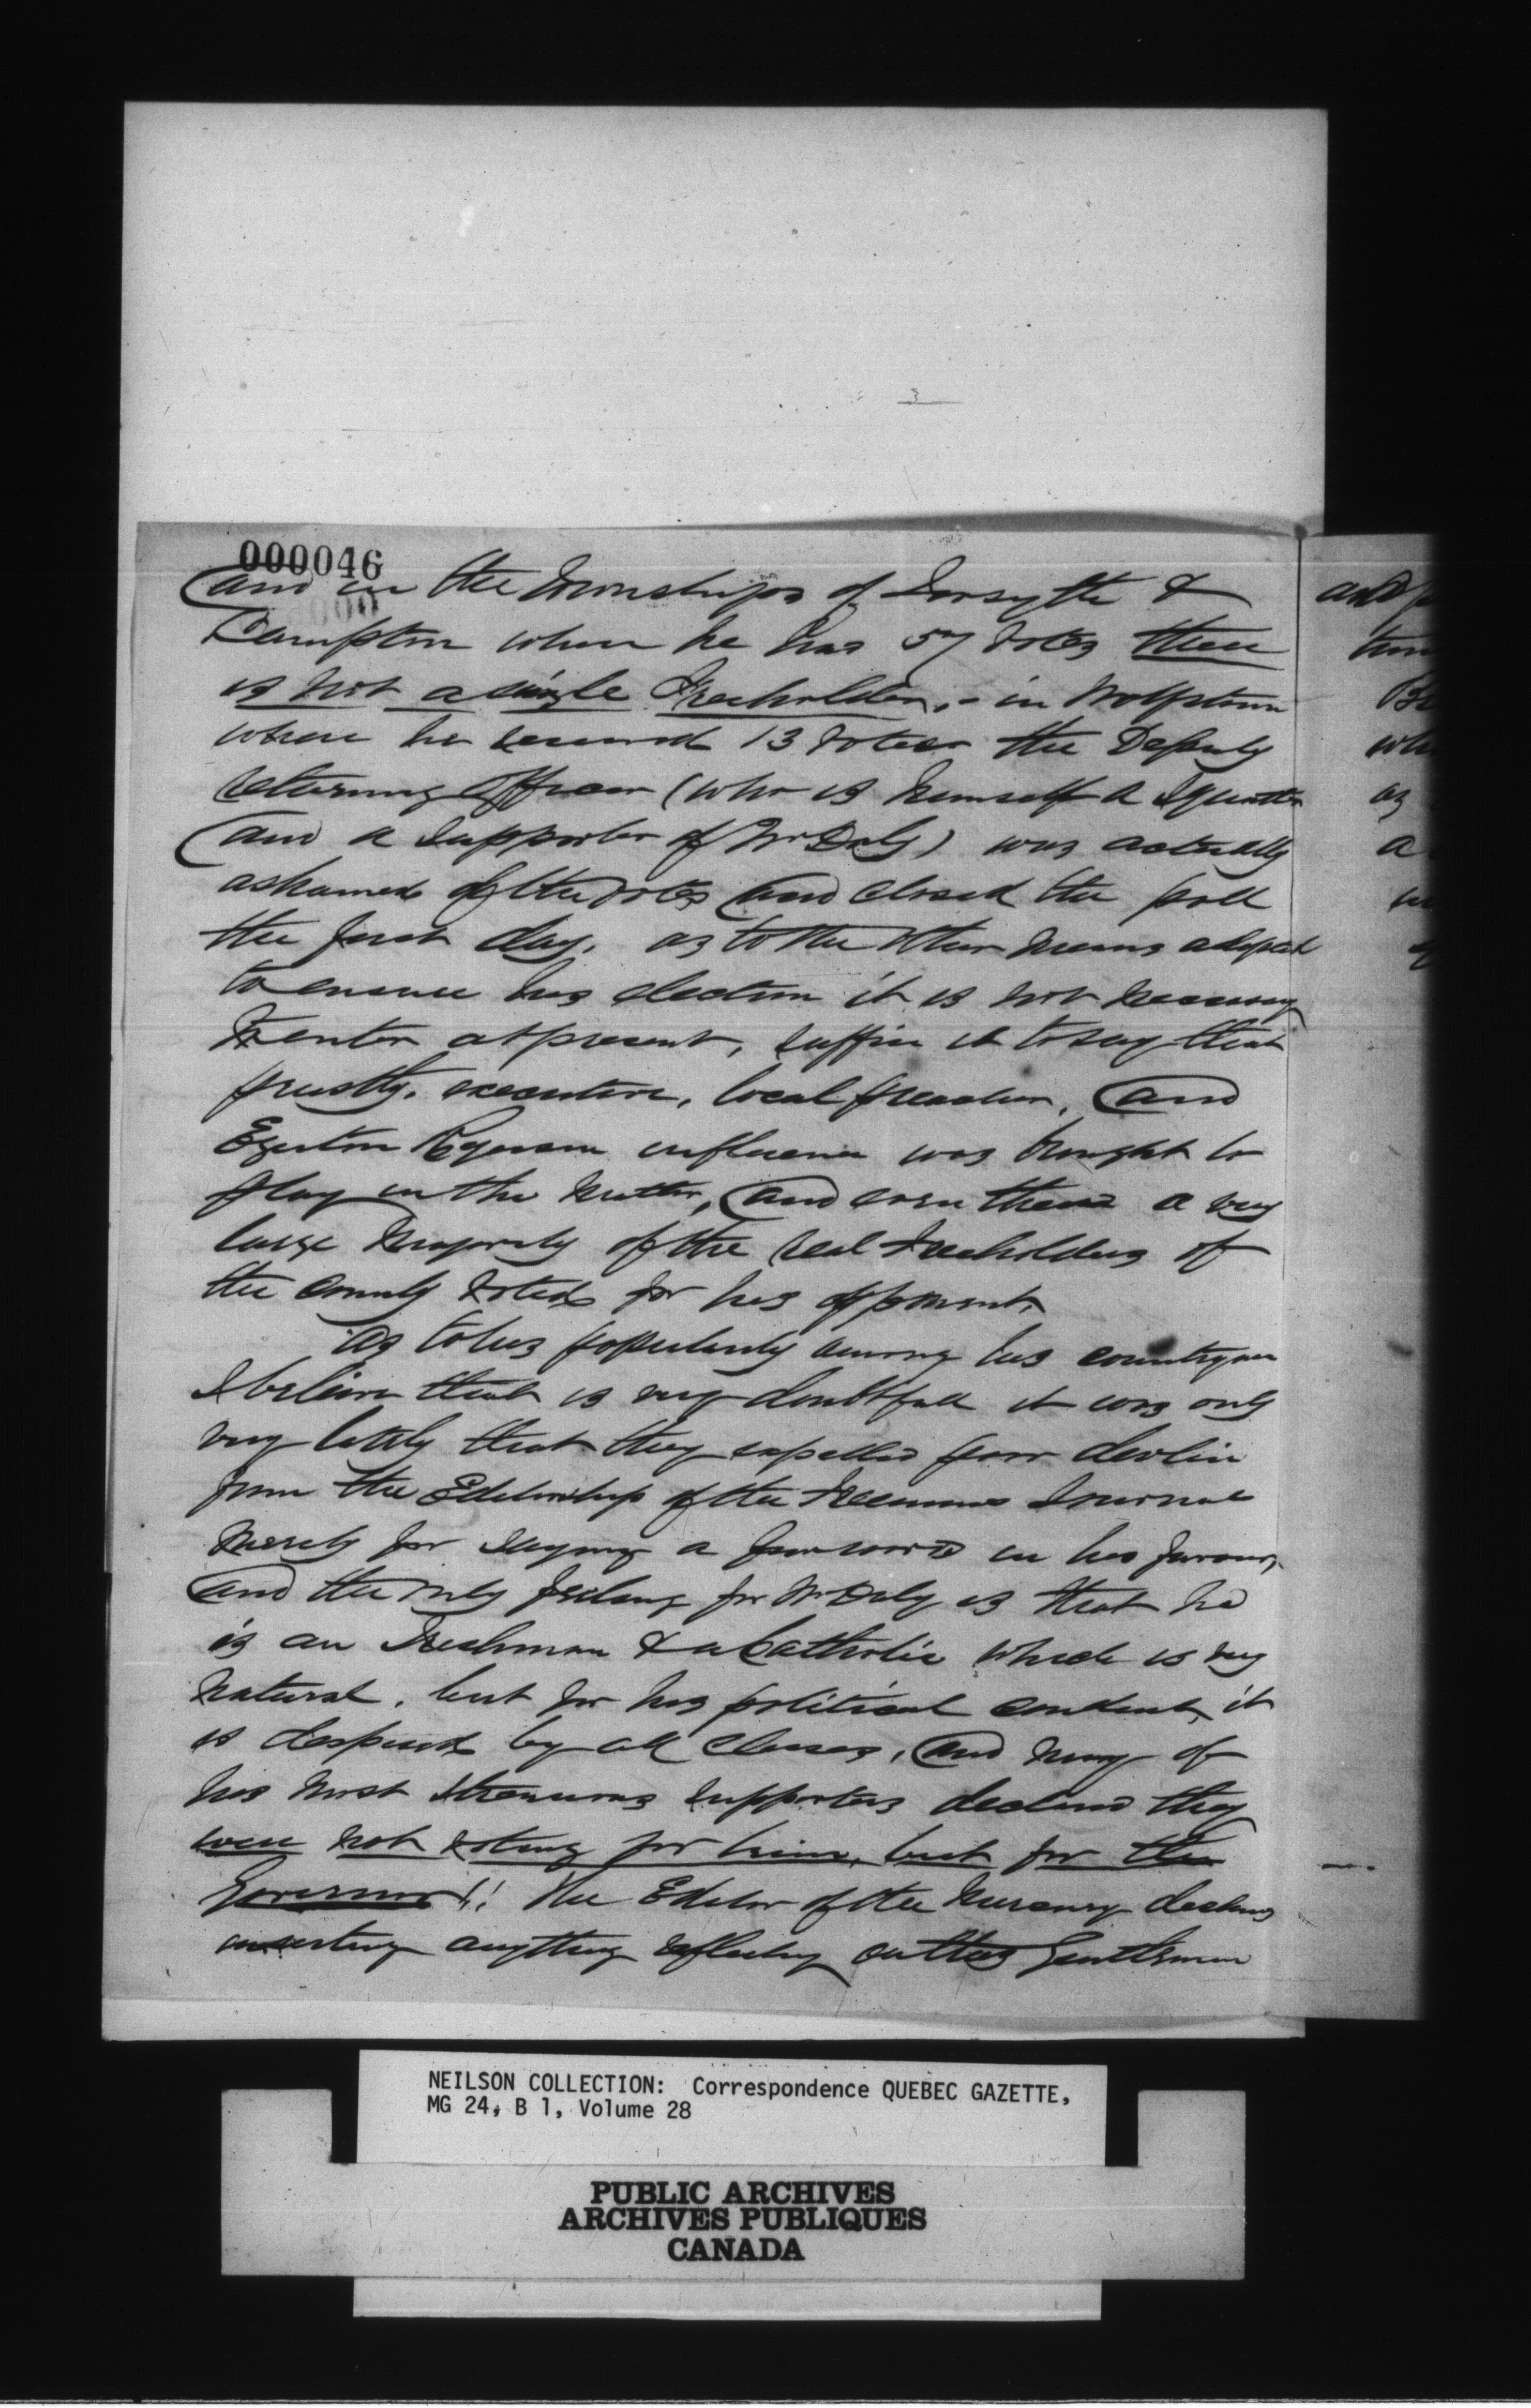 3
000046
and in the Townships of Forsythe &
Compton where he has 57 votes there
is not a single Freeholder, - in Wolfstown
where he received 13 votes the Deputy
returning officer (who is himself a Squatter
and a supporter of Mr Daly) was actually
ashamed of the votes and closed the poll
the first day. as to the other means adopted
to ensure his election it is not necessary
to enter at present, suffice it to say that
priestly, executive, local, and
Egerton Ryerson influence was brought to
play in the matter, and even then a very
large majority of the real Freeholders of
the county voted for his opponent.
As to his popularity among his countrymen
I believe that is very doubtfull it was only
very lately that they expelled poor Devlin
from the Editorship of the Freemans Journal
merely for saying a few words in his favour,
and the only feeling for Mr Daly is that he
is an Irishman & a Catholic which is very
natural, but for his political conduct, it
is despised by all classes, and many of
his most strenuous supporters declared they
were not voting for him, but for the
Governor!! The Editor of the Mercury declines
inserting anything reflecting on this Gentleman
NEILSON COLLECTION: Correspondence QUEBEC GAZETTE,
MG 24, B 1, Volume 28
PUBLIC ARCHIVES
ARCHIVES PUBLIQUES
CANADA